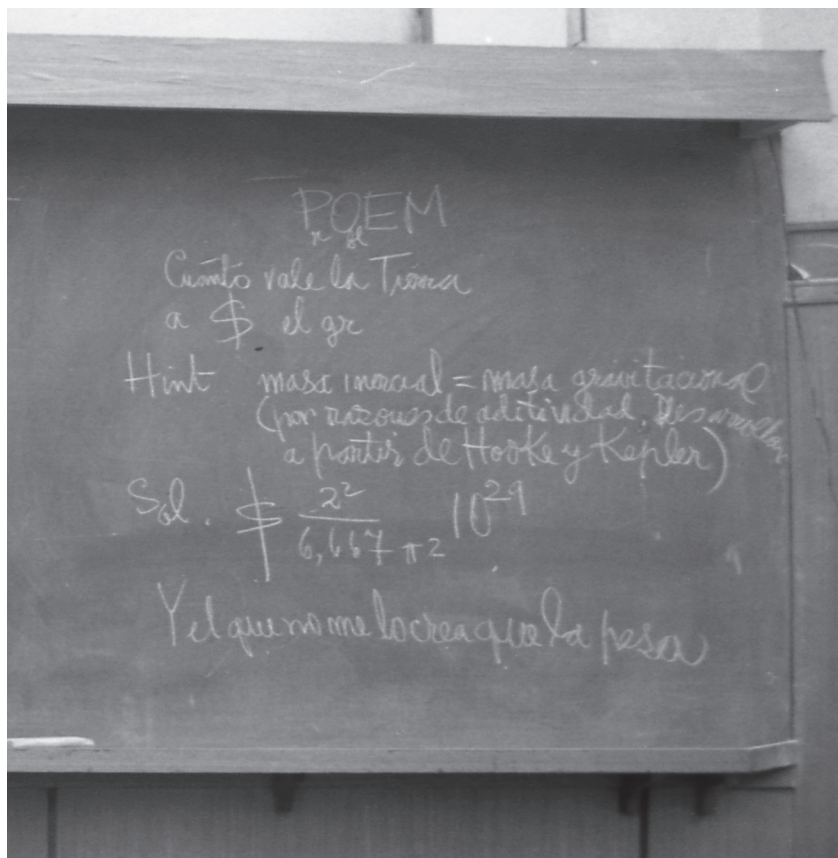 POEM
r bl
Cuánto vale la Tierra
a $ el gr
Hint masa inercial = masa gravitacional
(por razones de aditividad. Desarrollar
a partir de Hooke y Kepler)
Sol. $ 2² / 6,667 π² 10²⁹
Y el que no me lo crea que la pesa